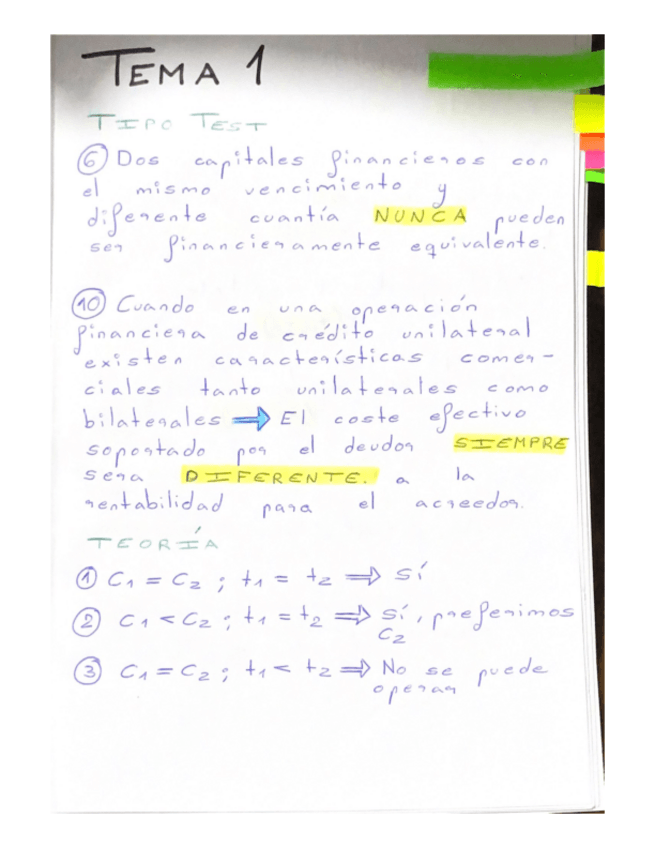 TEMA 1
TIPO TEST
⑥ Dos capitales financieros con
el mismo vencimiento y
diferente cuantía NUNCA pueden
ser financieramente equivalente.
⑩ Cuando en una operación
financiera de crédito unilateral
existen características comer-
ciales tanto unilaterales como
bilaterales ⇒ El coste efectivo
soportado por el deudor SIEMPRE
sera DIFERENTE. a la
rentabilidad para el acreedor.
TEORÍA
① C₁ = C₂ ; t₁ = t₂ ⇒ sí
② C₁ < C₂ ; t₁ = t₂ ⇒ sí, preferimos
C₂
③ C₁ = C₂ ; t₁ < t₂ ⇒ No se puede
operar